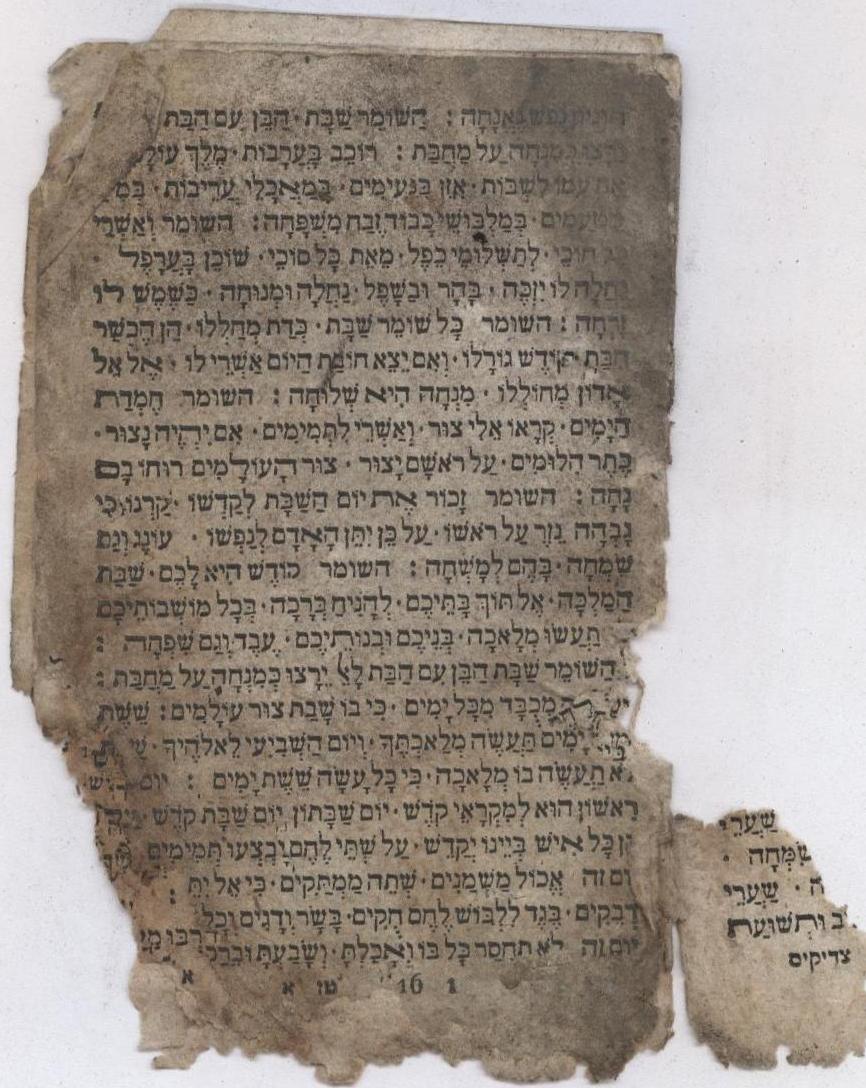 נֶאֱנָחָה : הַשּׁוֹמֵר שַׁבָּת · הַבֵּן עִם הַבַּת
עַל מַחֲבַת : רוֹכֵב בָּעֲרָבוֹת · מֶלֶךְ
לִשְׁבּוֹת · אִזֵּן בַּנְּעִימִים · בְּמַאֲכָלֵי עֲרֵיבוֹת ·
בְּמַלְבּוּשֵׁי כָבוֹד זֶבַח מִשְׁפָּחָה : השומר וְאַשְׁרֵי
חוֹכֵי · לְתַשְׁלוּמֵי כֵפֶל · מֵאֵת כָּל סוֹכֵי · שׁוֹכֵן בָּעֲרָפֶל ·
לוֹ יִזְכֶּה · בָּהָר וּבַשָּׁפֶל · נַחֲלָה וּמְנוּחָה · כַּשֶּׁמֶשׁ לוֹ
זָרְחָה : השומר כָּל שׁוֹמֵר שַׁבָּת · כְּדָת מְחַלְּלוֹ · הֵן הֶכְשֵׁר
חִבַּת קוֹדֶשׁ גּוֹרָלוֹ · וְאִם יֵצֵא חוֹבַת הַיּוֹם אַשְׁרֵי לוֹ · אֶל אֵל
אָדוֹן מְחוֹלְלוֹ · מִנְחָה הִיא שְׁלוּחָה : השומר חֶמְדַּת
הַיָּמִים · קְרָאוֹ אֵלִי צוּר · וְאַשְׁרֵי לִתְמִימִים · אִם יִהְיֶה נָצוּר ·
כֶּתֶר הִלּוּמִים · עַל רֹאשָׁם יָצוּר · צוּר הָעוֹלָמִים רוּחוֹ בָּם
נָחָה : השומר זָכוֹר אֶת יוֹם הַשַּׁבָּת לְקַדְּשׁוֹ · קַרְנוֹ כִּי
גָבְהָה נֵזֶר עַל רֹאשׁוֹ · עַל כֵּן יִתֵּן הָאָדָם לְנַפְשׁוֹ · עוֹנֶג וְגַם
שִׂמְחָה · בָּהֶם לְמָשְׁחָה : השומר קוֹדֶשׁ הִיא לָכֶם · שַׁבָּת
הַמַּלְכָּה · אֶל תּוֹךְ בָּתֵּיכֶם · לְהָנִיחַ בְּרָכָה · בְּכָל מוֹשְׁבוֹתֵיכֶם
תַעֲשׂוּ מְלָאכָה · בְּנֵיכֶם וּבְנוֹתֵיכֶם · עֶבֶד וְגַם שִׁפְחָה :
הַשּׁוֹמֵר שַׁבָּת הַבֵּן עִם הַבַּת לָאֵל יֵרָצוּ כְּמִנְחָה עַל מַחֲבַת :
מְכֻבָּד מִכָּל יָמִים · כִּי בוֹ שָׁבַת צוּר עוֹלָמִים : שֵׁשֶׁת
יָמִים תַּעֲשֶׂה מְלַאכְתֶּךָ · וְיוֹם הַשְּׁבִיעִי לֵאלֹהֶיךָ ·
תַעֲשֶׂה בוֹ מְלָאכָה · כִּי כָל עָשָׂה שֵׁשֶׁת יָמִים : יום
רִאשׁוֹן הוּא לְמִקְרָאֵי קֹדֶשׁ · יוֹם שַׁבָּתוֹן יוֹם שַׁבַּת קֹדֶשׁ ·
כָּל אִישׁ בְּיֵינוֹ יְקַדֵּשׁ · עַל שְׁתֵּי לֶחֶם יִבְצְעוּ תְמִימִים
זה אֱכוֹל מַשְׁמַנִּים · שְׁתֵה מַמְתַּקִּים · כִּי אֵל יִתֵּ
דְּבֵקִים · בֶּגֶד לִלְבּוֹשׁ לֶחֶם חֻקִּים · בָּשָׂר וְדָגִים וְכָל
יום זה לֹא תֶחְסַר כָּל בּוֹ וְאָכַלְתָּ · וְשָׂבַעְתָּ וּבֵרַכְ
1 16 טז א
א
שַׁעֲרֵי
שִׂמְחָה ·
שַׁעֲרֵי
וּתְשׁוּעַת
צדיקים